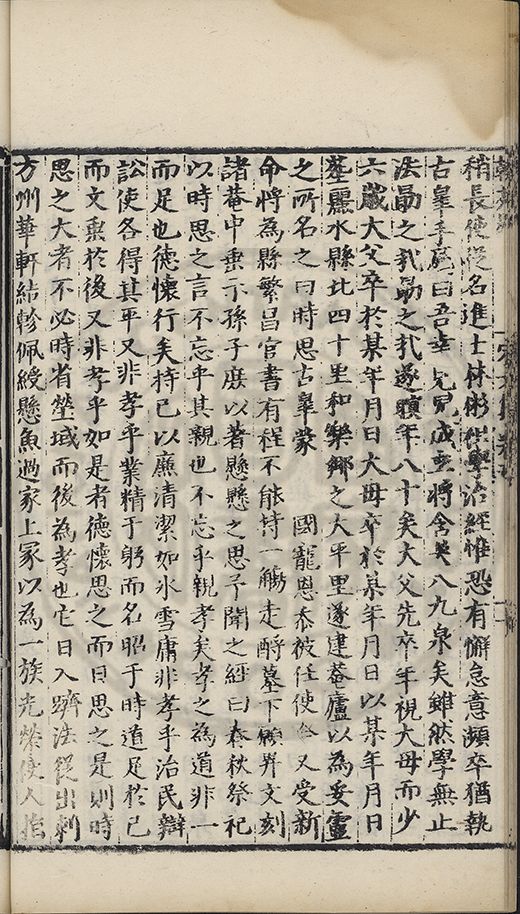 稍長使從名進士林彬䄇學治經惟恐有懈怠意瀕卒猶執
古臯手曰吾幸見兒成立將含笑入九泉矣雖然學無止
法勗之㢤勗之㢤遂瞑年八十矣大父先卒年視大母而少
六歲大父卒於某年月日大母卒於某年月日以某年月日
塟麗水縣北四十里和樂鄉之大平里遂建菴廬以為妥靈
之所名之曰時思古臯蒙　國寵恩忝被任使今又受新
命將為縣繁昌官書有程不能持一觴走酹墓下願畀文刻
諸菴中垂示孫子庶以著懸懸之思予聞之經曰春秋祭祀
以時思之言不忘乎其親也不忘乎親孝矣孝之為道非一
而足也徳懷行矣持己以廉清潔如氷雪庸非孝乎治民辯
訟使各得其平又非孝乎業精于躬而名昭于時道足於己
而文垂於後又非孝乎如是者徳懷思之而日思之是則時
思之大者不必時省塋域而後為孝也它日入躋法從出刺
方州華軒結軫佩綬懸魚過家上冢以為一族光榮使人指